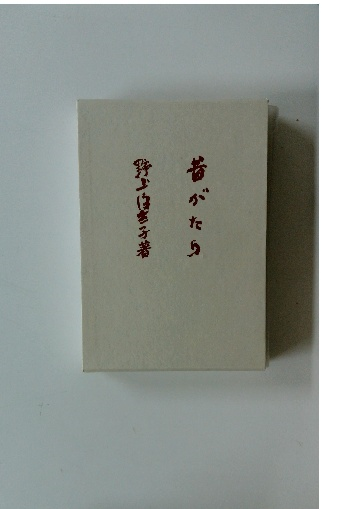 昔がたり
野上彌生子著